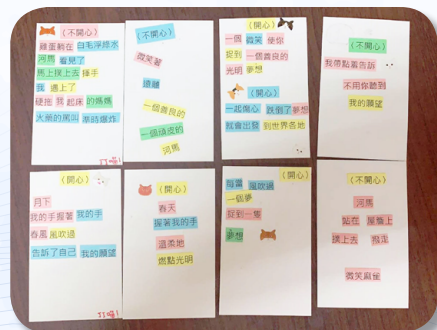 (不開心)
雞蛋躺在 白毛浮綠水
河馬 看見了
馬上撲上去 揮手
我 遇上了
硬拖 我 起床 的媽媽
火爺的罵叫 準時爆炸
(不開心)
微笑著
遠離
一個善良的
一個頑皮的
河馬
(開心)
一個 微笑 使你
捉到 一個善良的
光明 夢想
(開心)
一起傷心 跌倒了 夢想
就會出發 到世界各地
(不開心)
我帶點羞告訴
不用你聽到
我的願望
(開心)
月下
我的手握著 我的手
春風 風吹過
告訴了自己 我的願望
(開心)
春天
握著我的手
溫柔地
燃點光明
(開心)
每當 風吹過
一個夢
捉到一隻
夢想
(不開心)
河馬
站在 屋簷上
講上去 飛來
微笑麻雀